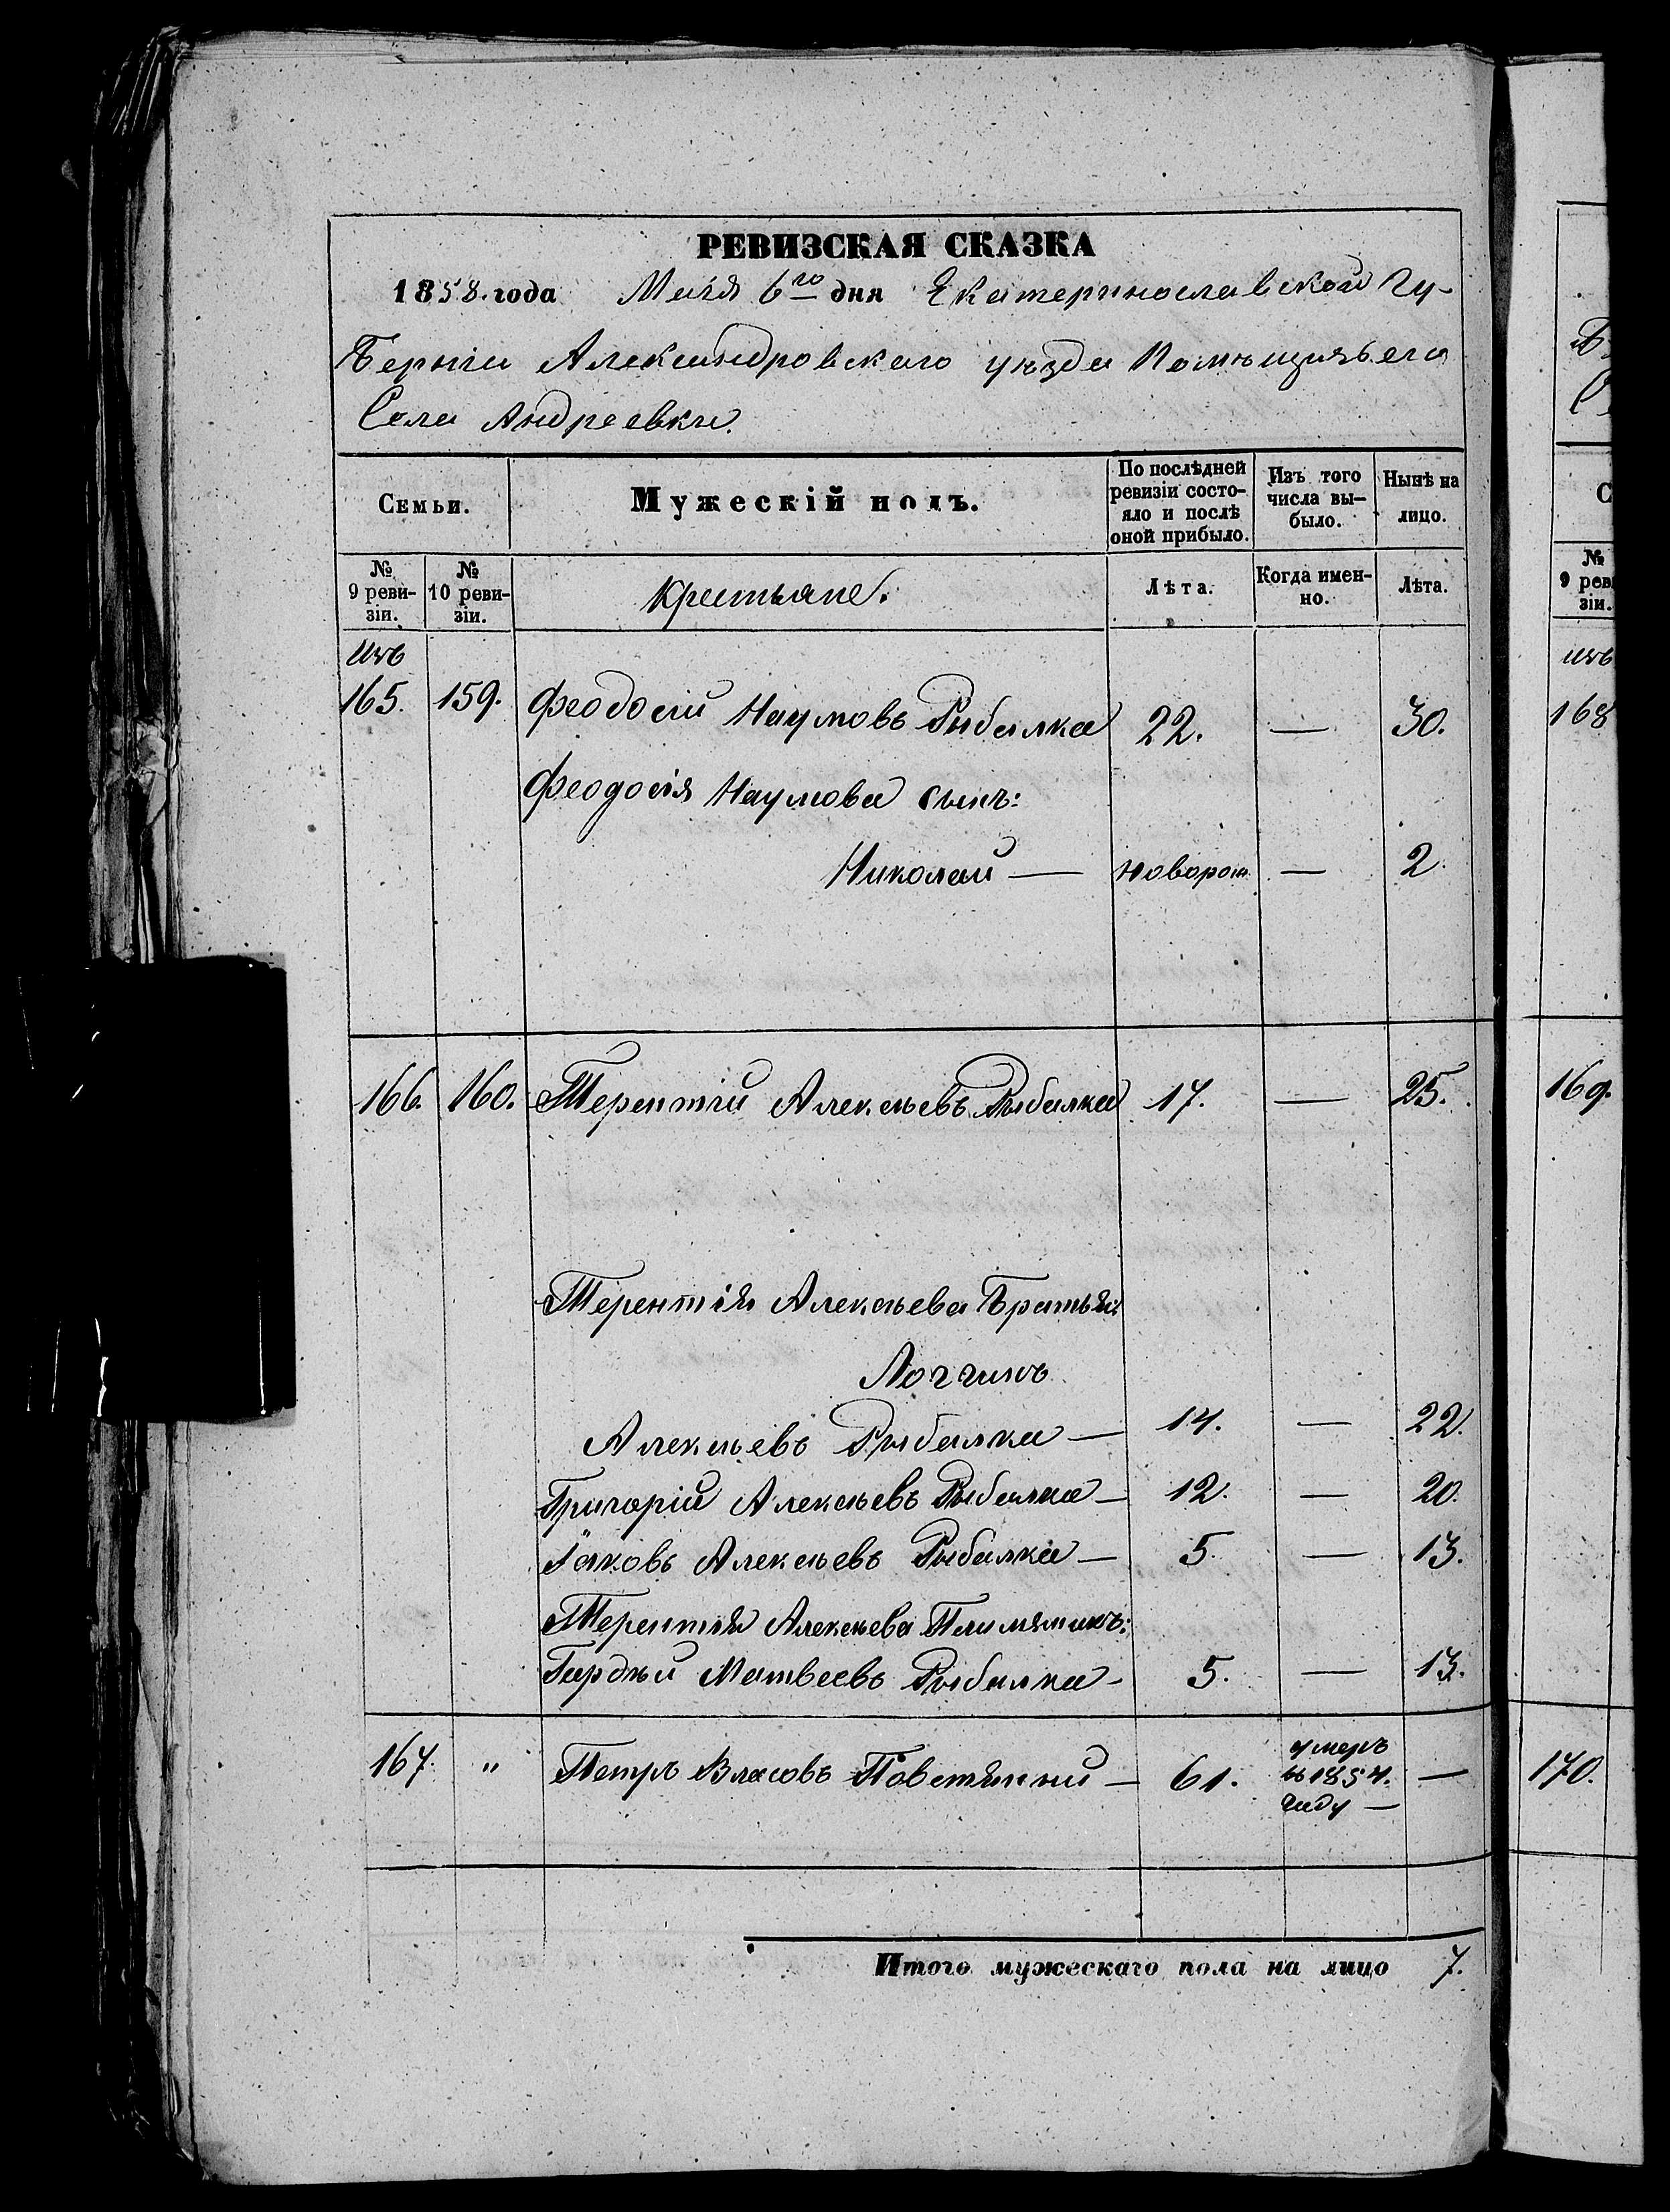 РЕВИЗСКАЯ СКАЗКА
1858. года Маія 6го дня Екатеринославской Гу-
берніи Александровскаго уѣзда Помѣщичьяго
Села Андреевки.
Семьи.
Мужескій полъ.
По послѣдней ревизіи состо-яло и послѣ оной прибыло.
Изъ того числа вы-было.
Нынѣ на лицо.
№ 9 реви-зіи.
№ 10 реви-зіи.
Крестьяне.
Лѣта.
Когда имен-но.
Лѣта.
Изъ
165. 159. Феодосій Наумовъ Рыбалка 22. — 30.
Феодосія Наумова сынъ:
Николай — новорож — 2
166. 160. Терентій Алексѣевъ Рыбалка 17. — 25.
Терентія Алексѣева Братья:
Логгинъ
Алексѣевъ Рыбалка — 14. — 22.
Григорій Алексѣевъ Рыбалка — 12. — 20.
Іаковъ Алексѣевъ Рыбалка — 5. — 13.
Терентія Алексѣева Племянникъ:
Гордѣй Матвеевъ Рыбалка - 5. — 13.
167. " Петръ Власовъ Повстянный — 61. умеръ въ 1854. году — —
Итого мужескаго пола на лицо 7.
С
№
9 рев
зіи.
изъ
168
169.
170.